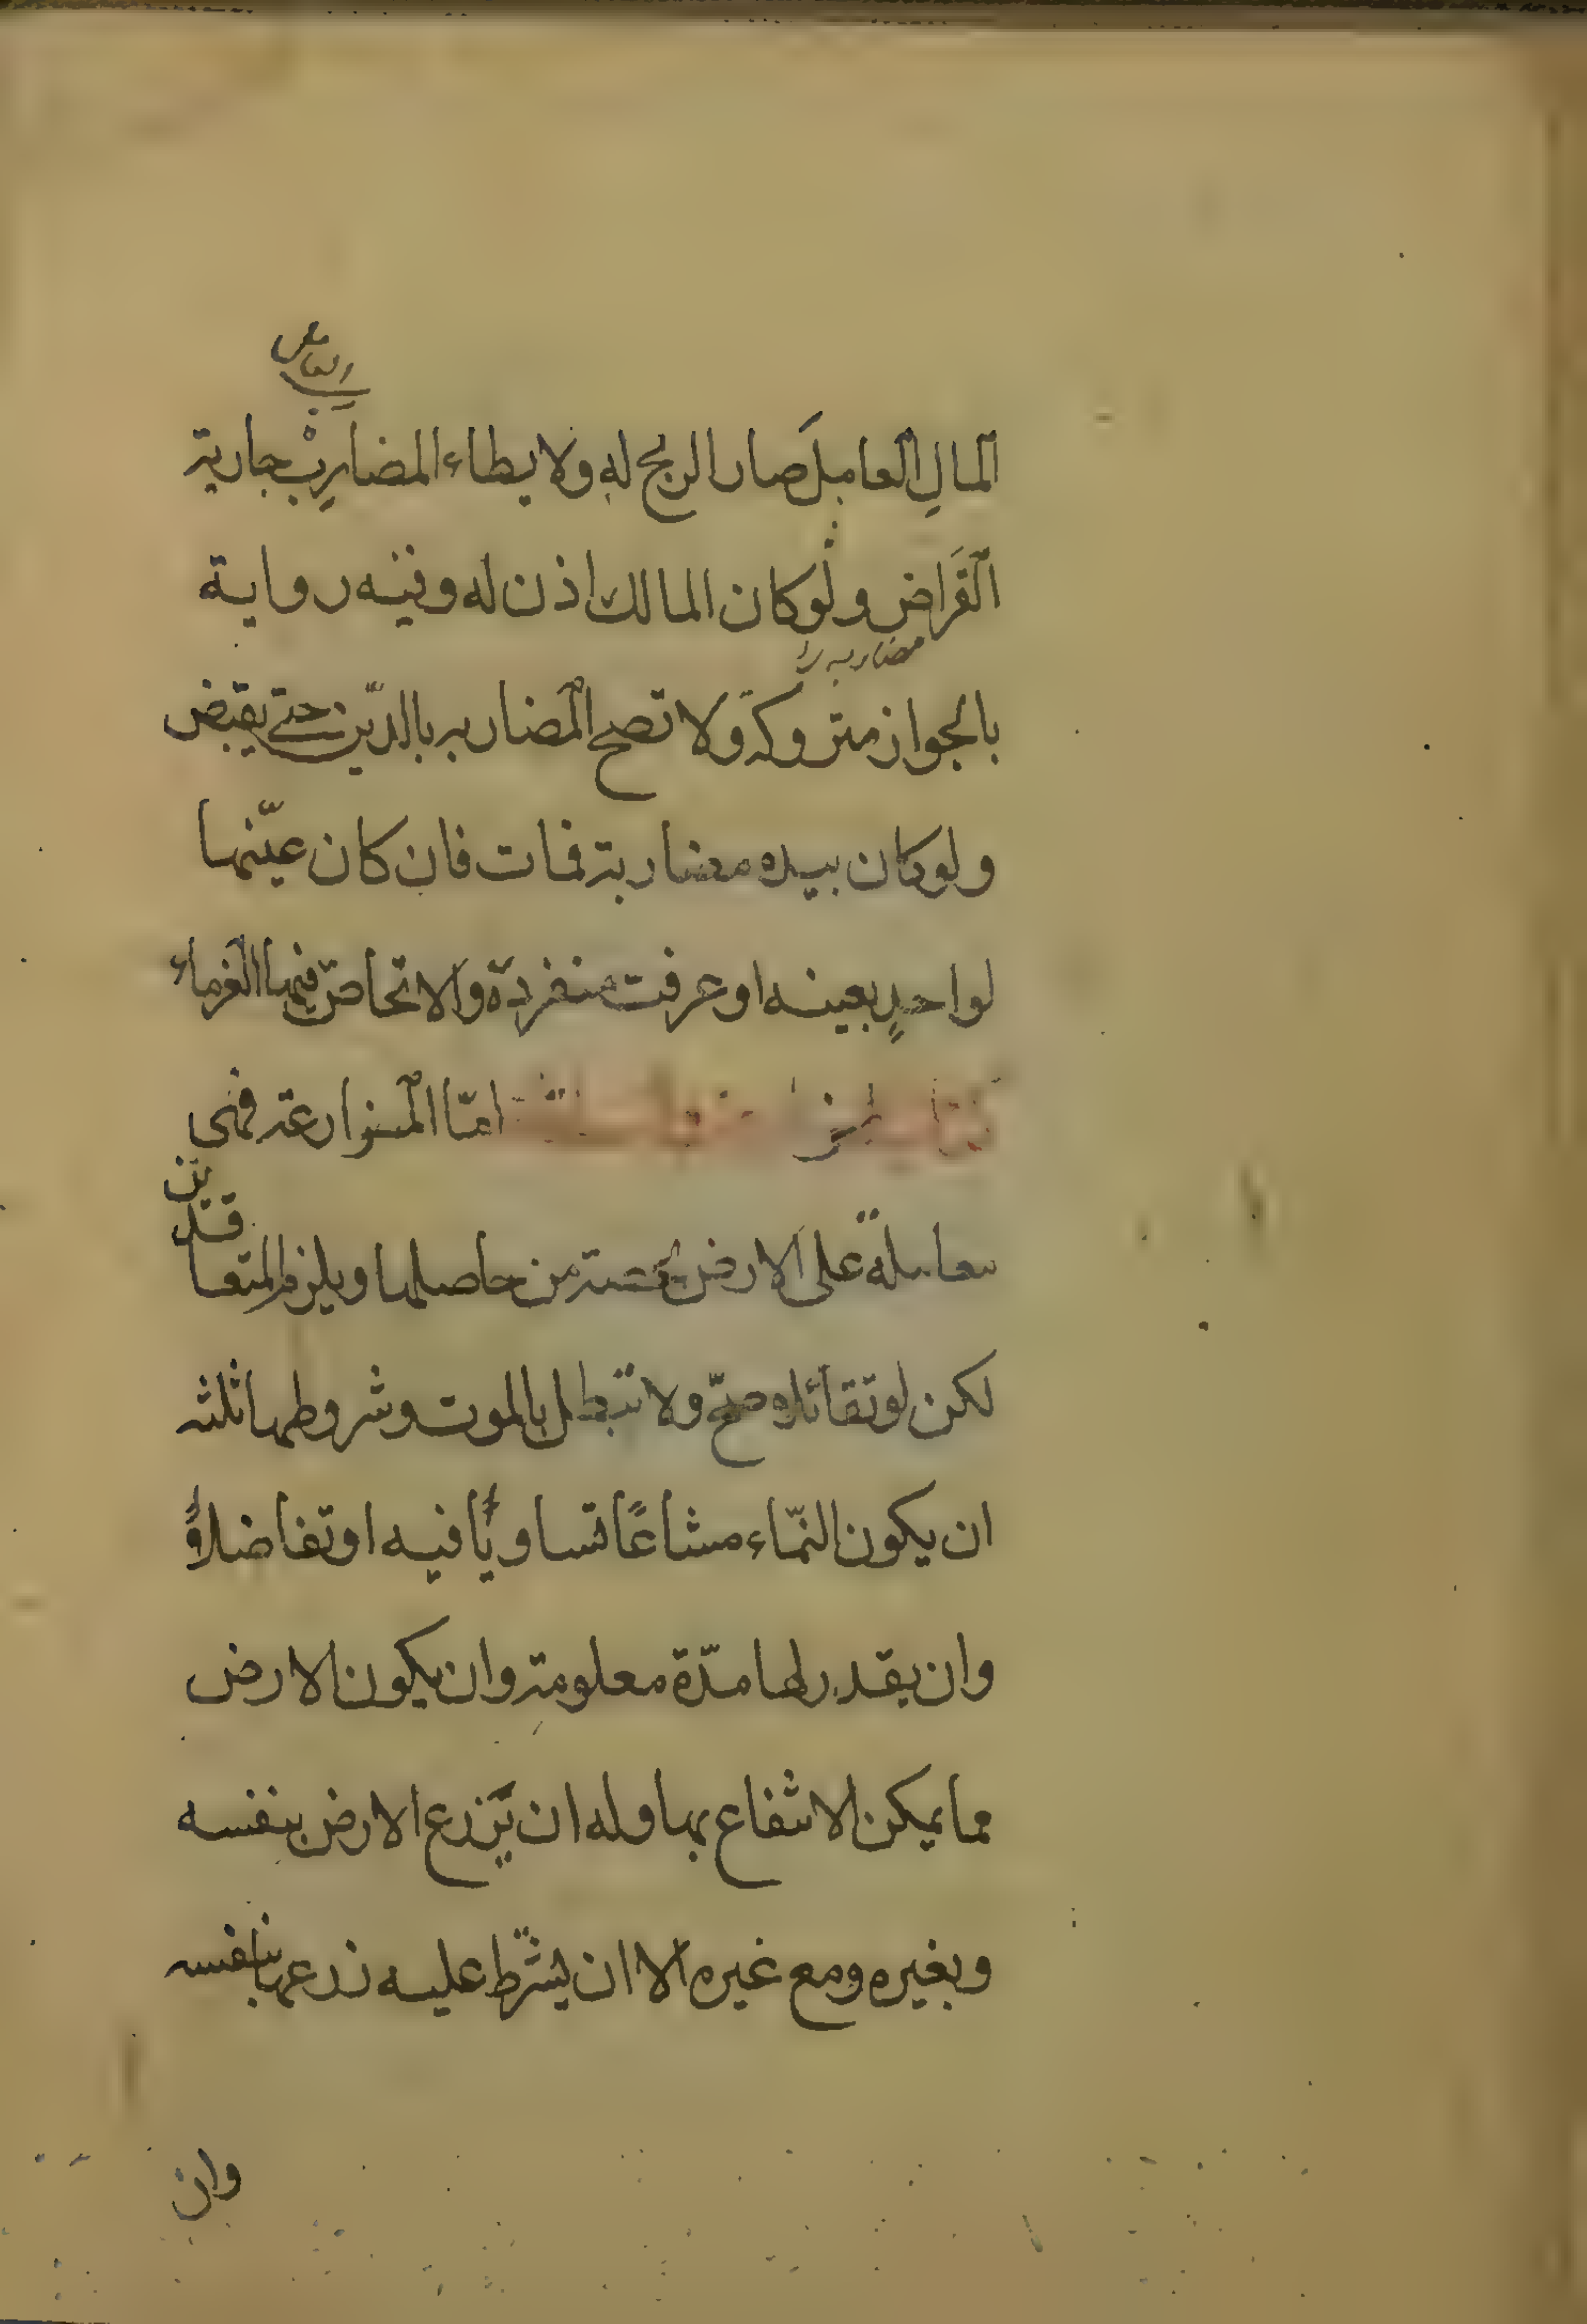 العامل
المالِ العاملَ صار الربح له ولا يطاء المضارِبْ جارية
القَراضِ ولو كان المالك اذن له وفيه رواية
مضاربه را
بالجواز متروكة ولا تصح المضاربه بالدّين حتى يقبض
ولو كان بيده مضاربة فمات فان كان عيّنها
لواحدٍ بعينه او عرفت منفردة والا تحاصّ فيها الغرماء
كتاب امّا المزارعة فهى
معاملة على الارض بحصة من حاصلها ويلزم المتعاقدين
لكن لو تقائلاه صحّ ولا تبطل بالموت وشروطها ثلثه
ان يكون النّماء مشاعًا تساويًا فيه او تفاضلاً
وان يقدر لها مدّة معلومة وان يكون الارض
مما يمكن الانتفاع بها وله ان يَزرع الارض بنفسه
وبغيره ومع غيره الا ان يشترط عليه زرعها بنفسه
وان